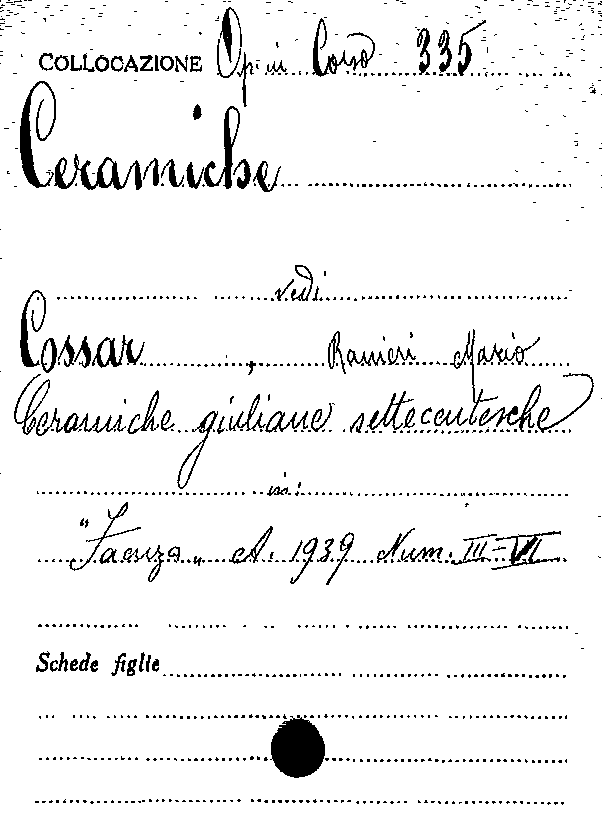 COLLOCAZIONE Op. in Corso 335
Ceramiche
vedi
Cossar, Ranieri Mario
Ceramiche giuliane settecentesche
in:
"Faenza„ A. 1939 Num. III-VI
Schede figlie